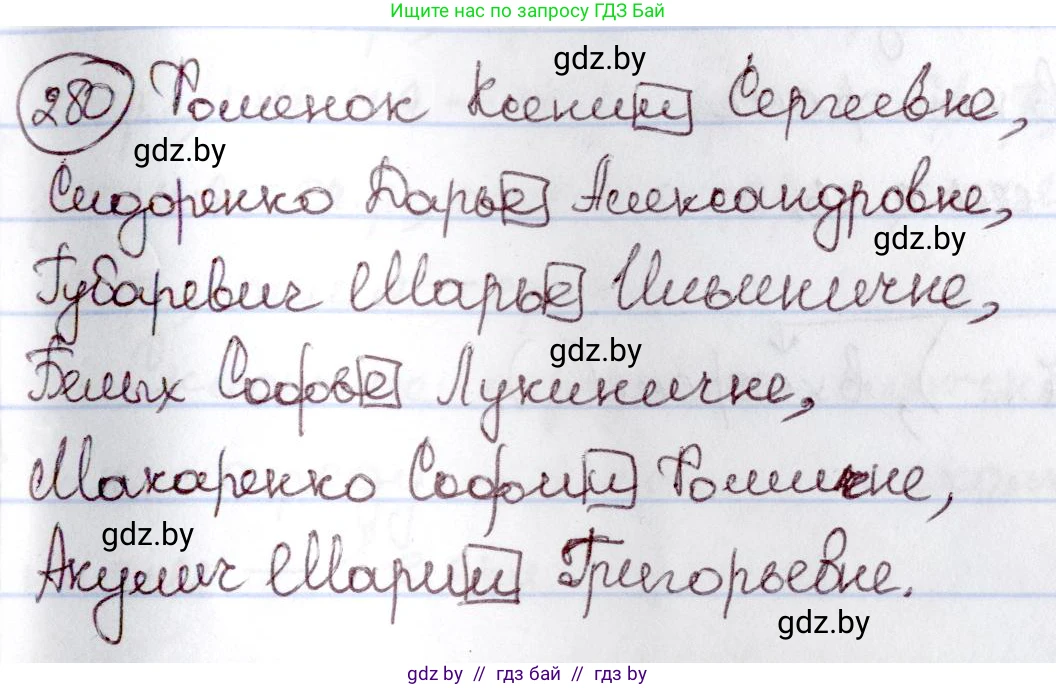 Ищите нас по запросу ГДЗ Бай
gdz.by
280 Роменок Ксении Сергеевне,
gdz.by
Сидоренко Дарье Александровне,
gdz.by
Губаревич Марье Ильиничне,
gdz.by
Белых Софье Лукиничне,
Макаренко Софии Фоминичне,
gdz.by
Акулич Марии Григорьевне.
gdz.by
gdz.by // гдз бай // гдз by